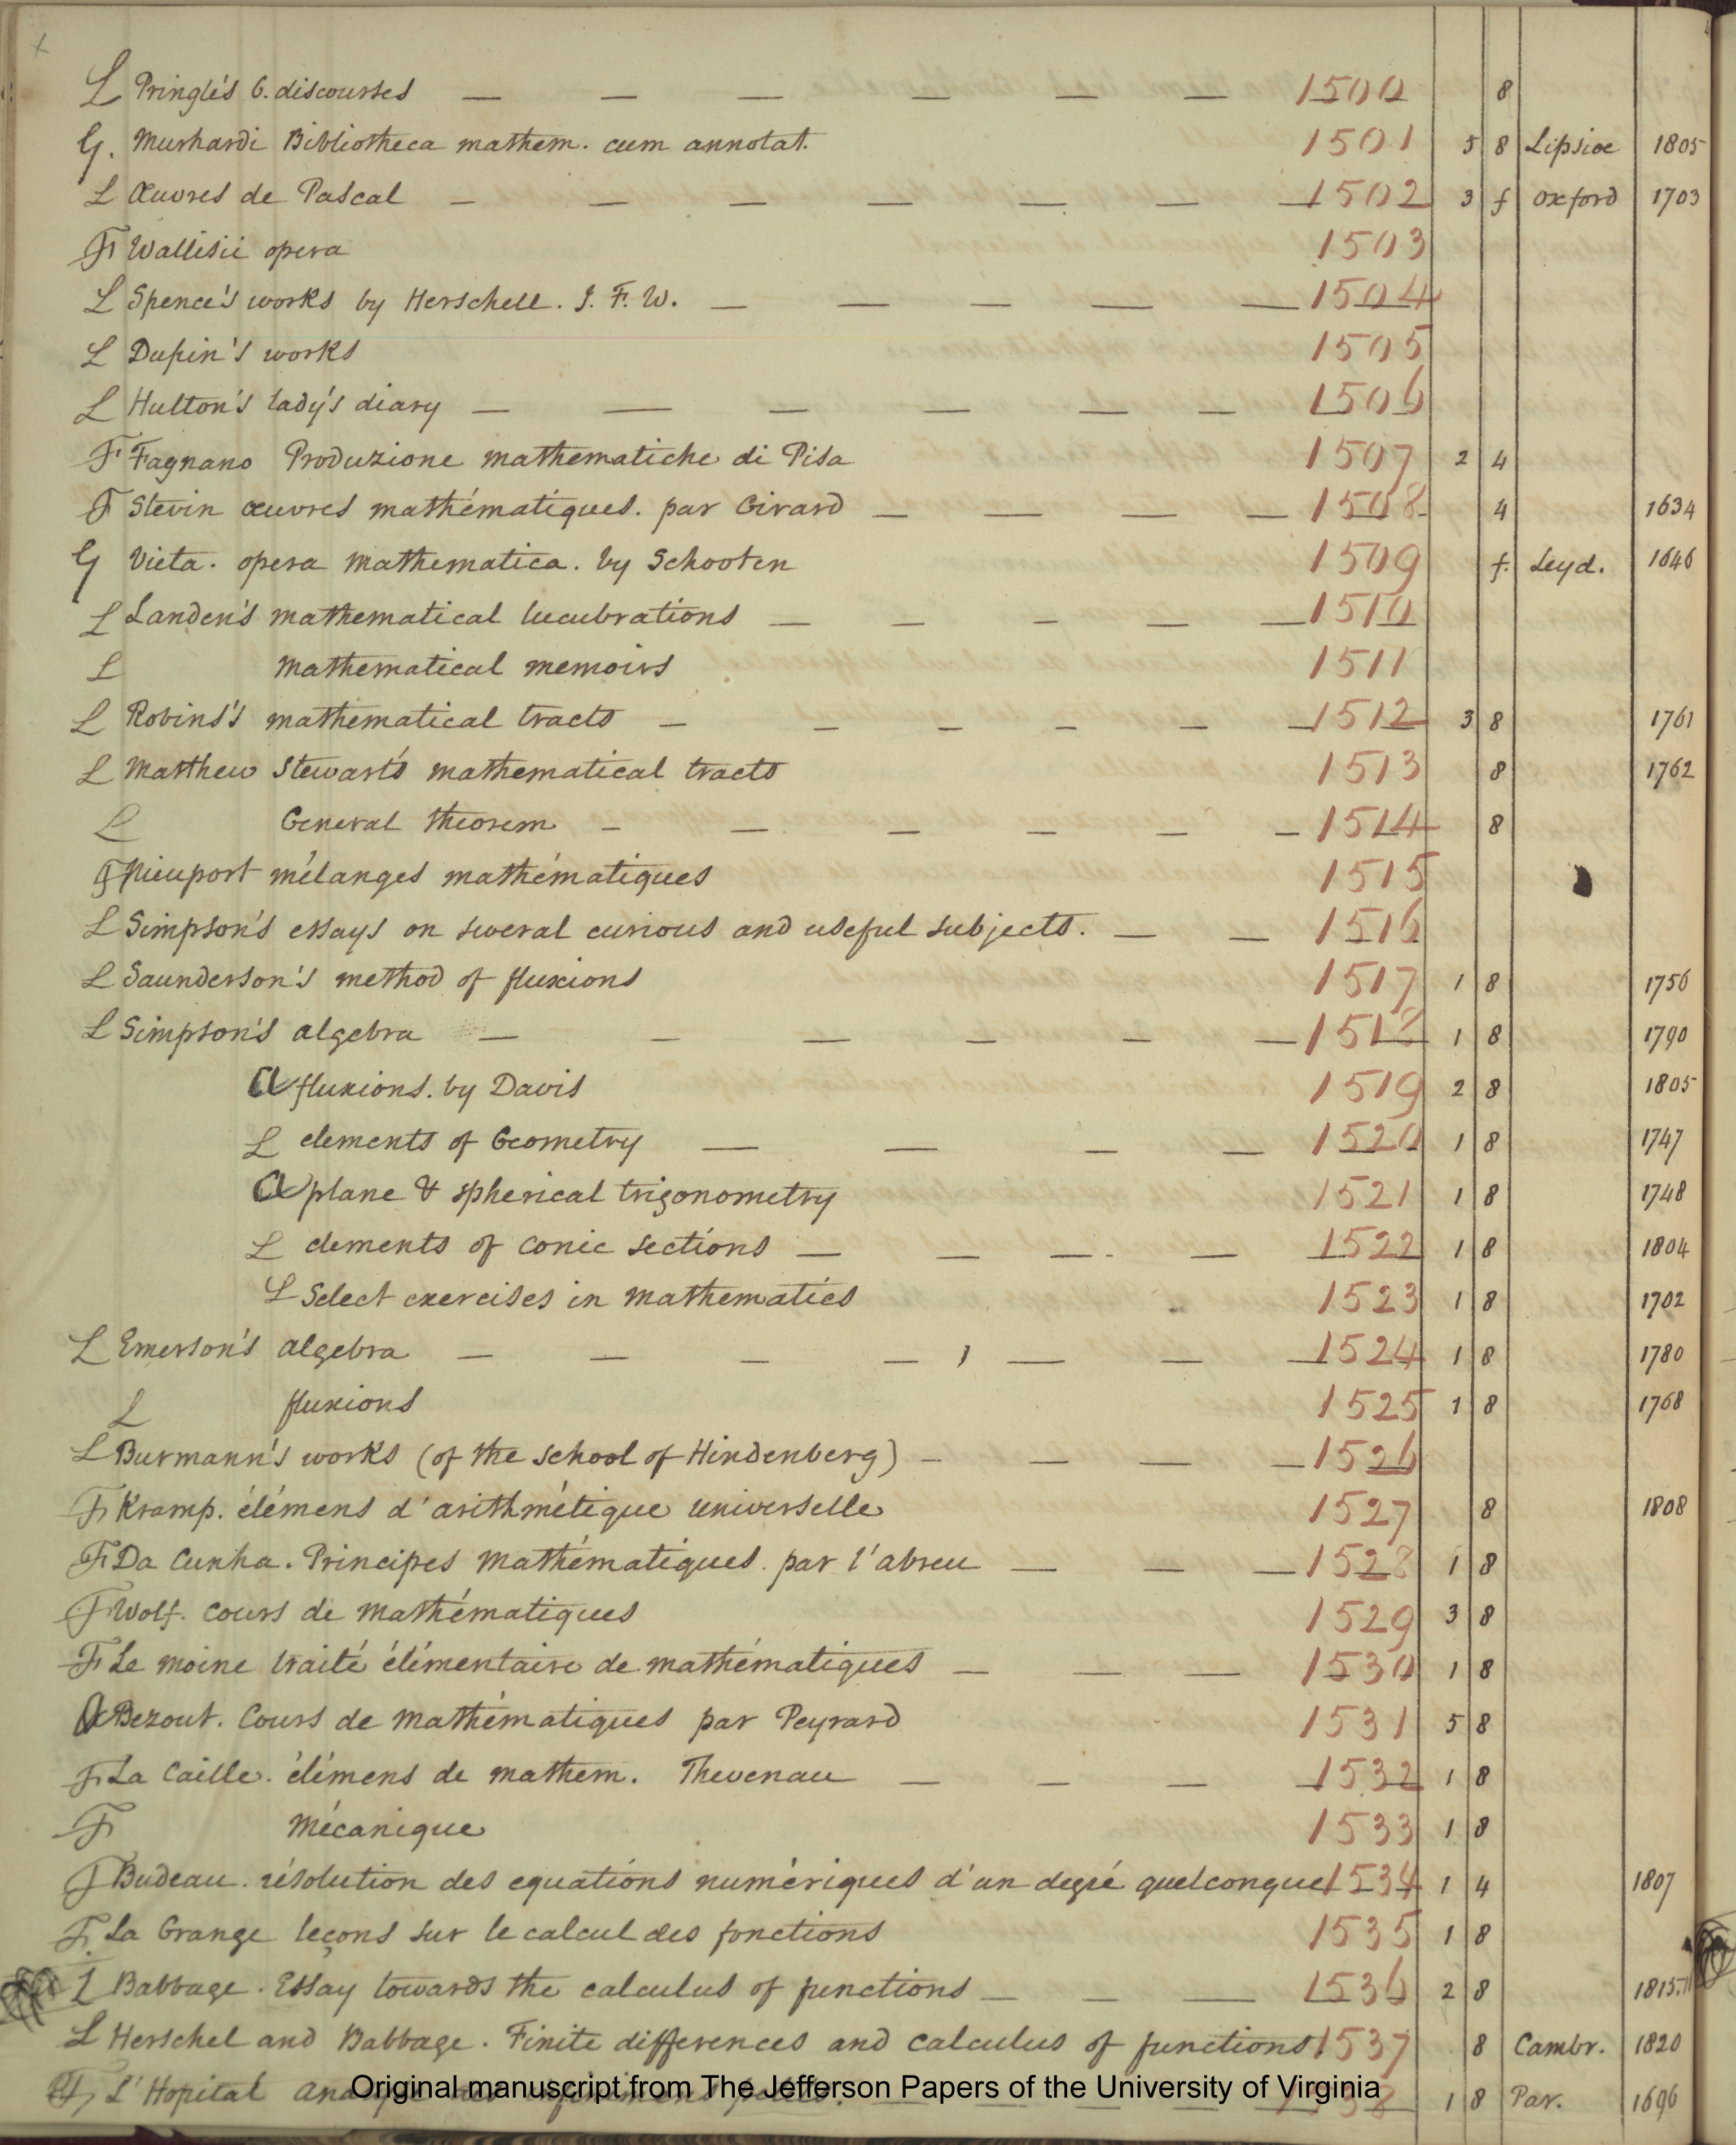 L Pringle's 6. discourses — — — — — — 1500 8
G. Murhardi Bibliotheca mathem. cum annotat. 1501 5 8 Lipsiae 1805
L Œuvres de Pascal — — — — — — — 1502 3 f Oxford 1703
F Wallisii opera 1503
L Spence's works by Herschell. J. F. W. — — — — — 1504
L Dupin's works 1505
L Hutton's lady's diary — — — — — — 1506
F Fagnano Produzione mathematiche di Pisa 1507 2 4
F Stevin œuvres mathématiques. par Girard — — — — 1508 4 1634
G Vieta. opera mathematica. by Schooten 1509 f. Leyd. 1646
L Landen's mathematical lucubrations — — — — — 1510
L mathematical memoirs 1511
L Robins's mathematical tracts — — — — — — 1512 3 8 1761
L Matthew Stewart's mathematical tracts 1513 8 1762
L General theorem — — — — — — 1514 8
F Nieuport mélanges mathématiques 1515
L Simpson's essays on several curious and useful subjects. — — 1516
L Saunderson's method of fluxions 1517 1 8 1756
L Simpson's algebra — — — — — — 1518 1 8 1790
a fluxions. by Davis 1519 2 8 1805
L elements of Geometry — — — — 1520 1 8 1747
a plane & spherical trigonometry 1521 1 8 1748
L elements of conic sections — — — — 1522 1 8 1804
L Select exercises in mathematics 1523 1 8 1702
L Emerson's algebra — — — — — — — 1524 1 8 1780
L fluxions 1525 1 8 1768
L Burmann's works (of the school of Hindenberg) — — — — 1526
F Kramp. élémens d'arithmétique universelle 1527 8 1808
F Da Cunha. Principes mathématiques. par l'abreu — — — 1528 1 8
F Wolf. cours de mathématiques 1529 3 8
F Le moine traité élémentaire de mathématiques — — — 1530 1 8
a Bezout. Cours de mathématiques par Peyrard 1531 5 8
F La Caille. élémens de mathem. Thevenau — — — — 1532 1 8
F Mécanique 1533 1 8
F Budeau. résolution des equations numériques d'un degré quelconque 1534 1 4 1807
F La Grange leçons sur le calcul des fonctions 1535 1 8
L Babbage. Essay towards the calculus of functions — — — 1536 2 8 1815
L Herschel and Babbage. Finite differences and calculus of functions. 1537 8 Cambr. 1820
F L'Hopital 1538 1 8 Par. 1696
Original manuscript from The Jefferson Papers of the University of Virginia